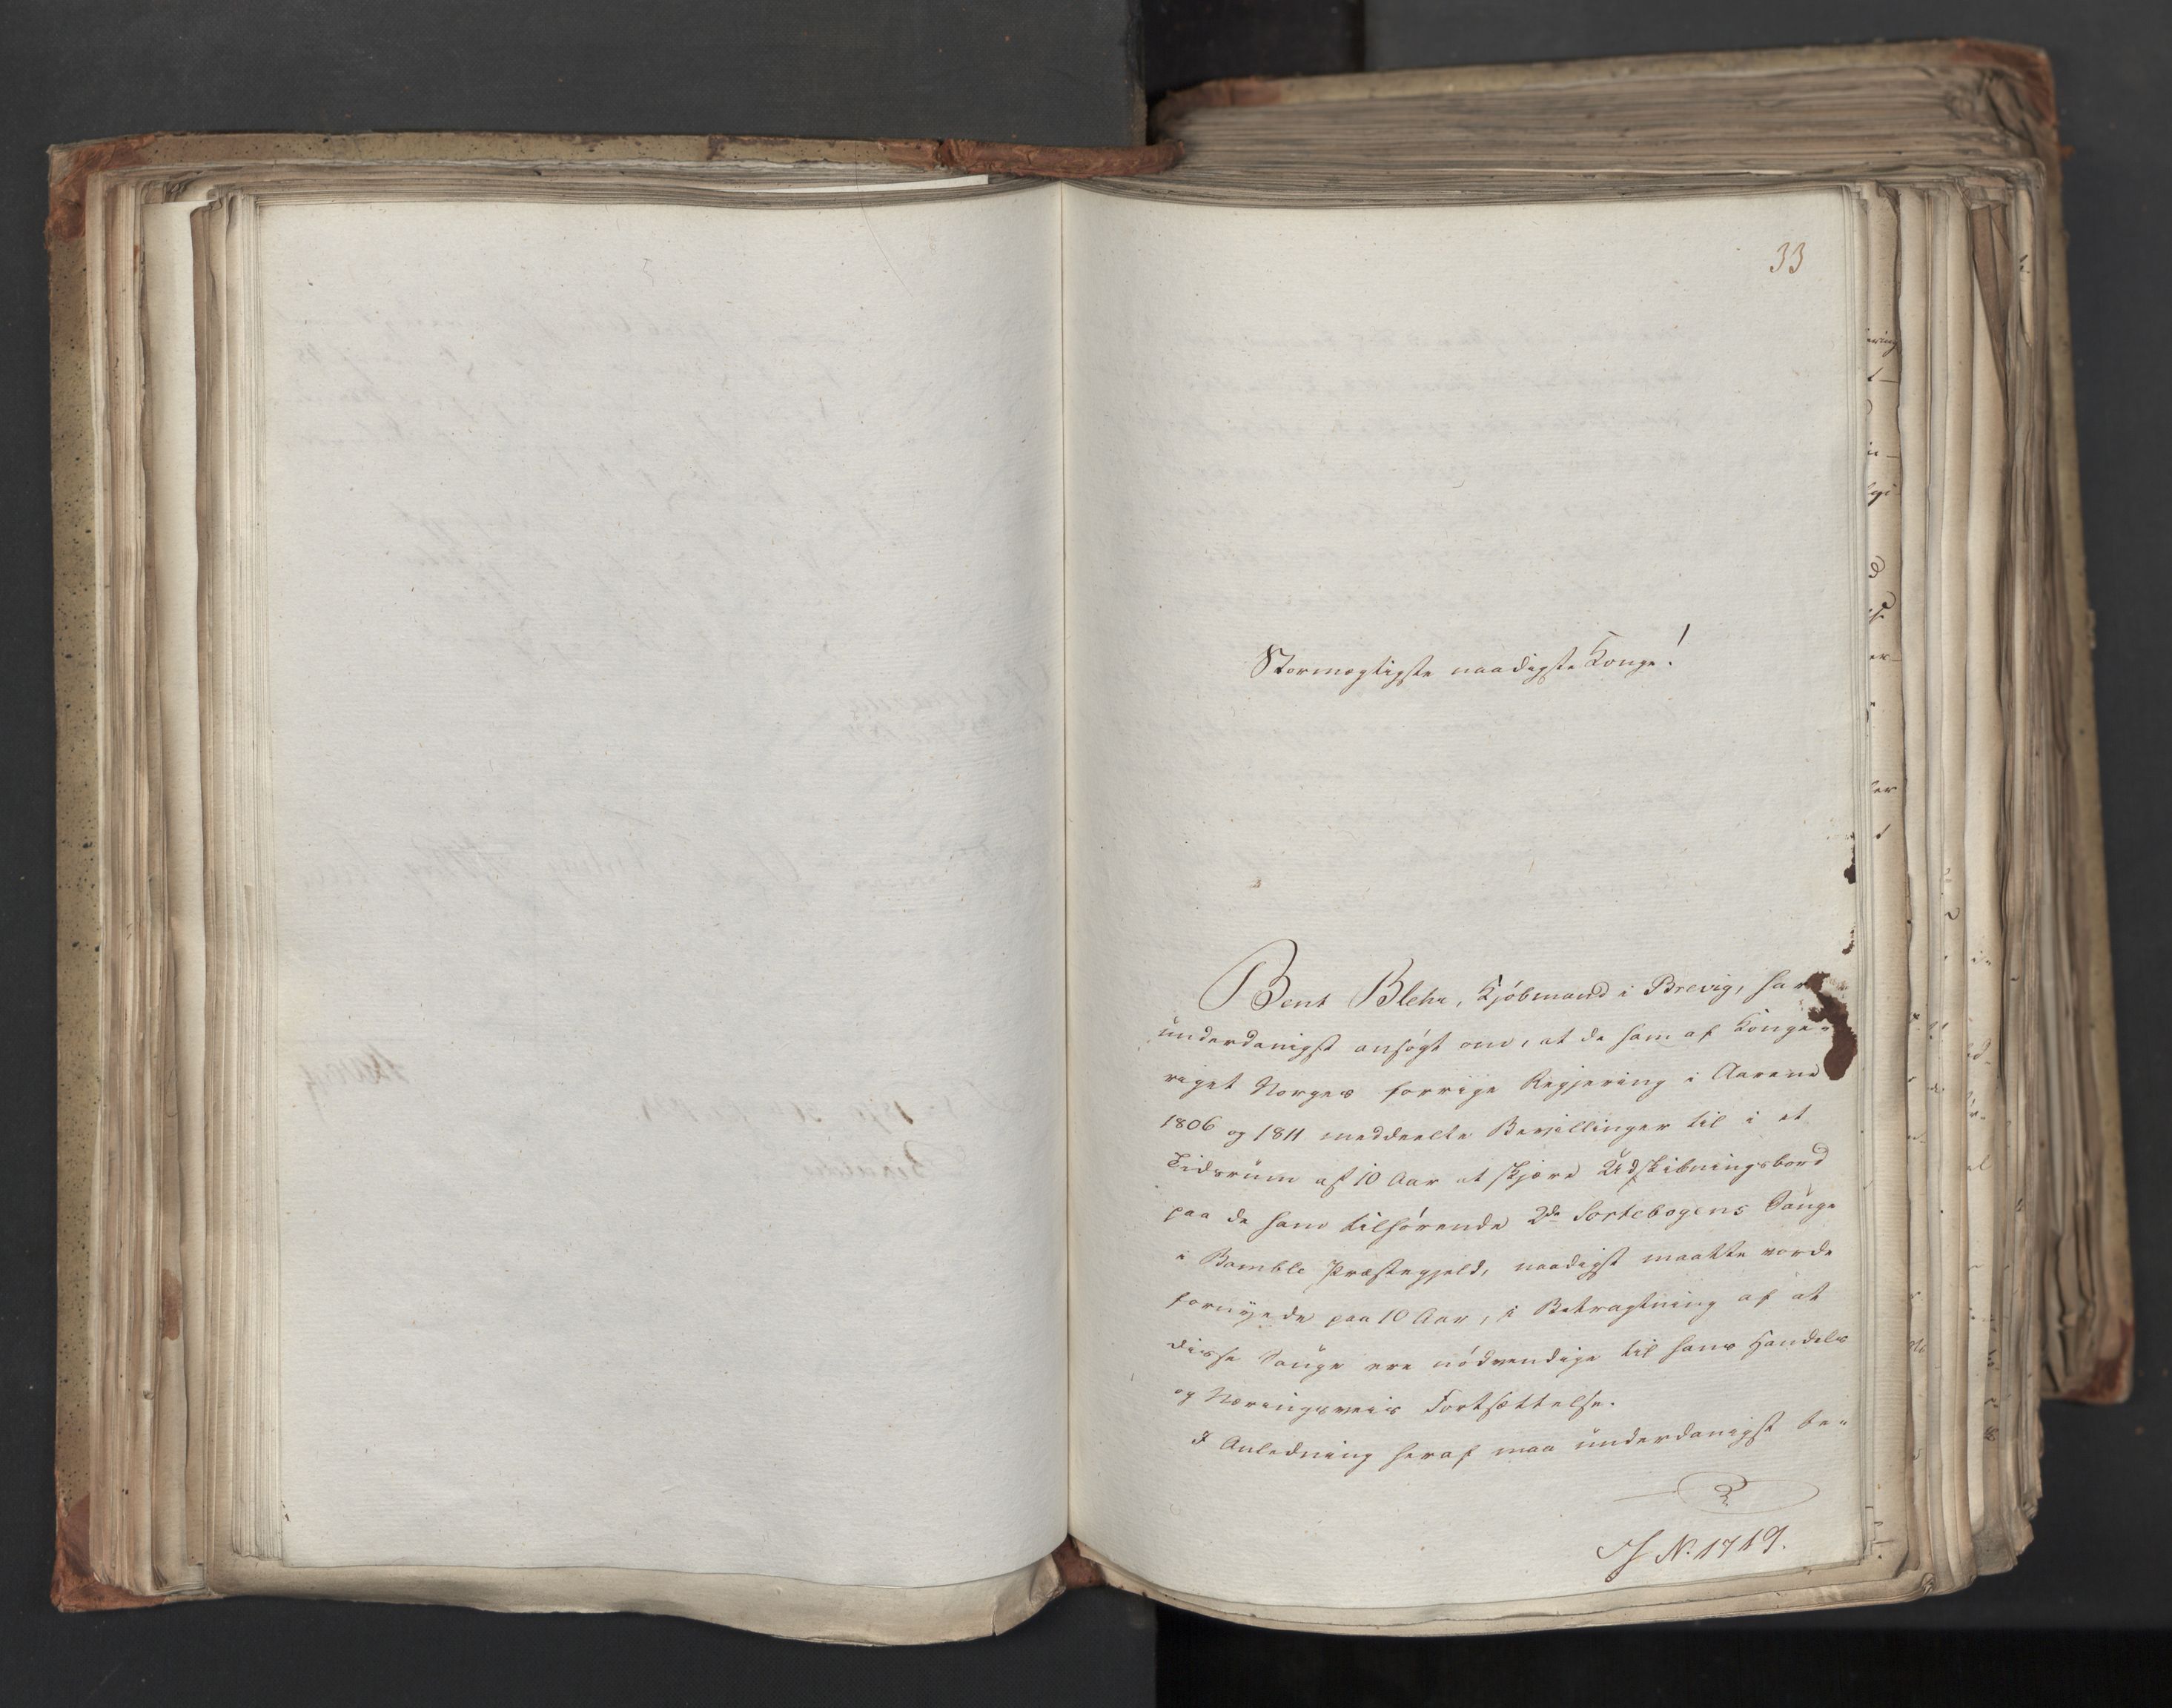 33
Stormægtigste naadigste Konge!
Bent Blehr, Kjöbmand i Brevig, har
underdanigst ansögt om, at de ham af Konge-
riget Norges forrige Regjering i Aarene
1806 og 1811 meddeelte Bevillinger til i et
Tidsrum af 10 Aar at skjære Udskibningsbord
paa de ham tilhörende 2de Sortebogens Sauge
i Bamble Præstegjeld, naadigst maatte vorde
fornyede paa 10 Aar, i Betragtning af at
disse Sauge ere nödvendige til hans Handels
og Næringsveis Fortsættelse.
I Anledning heraf maa underdanigst be-
N. 1719.